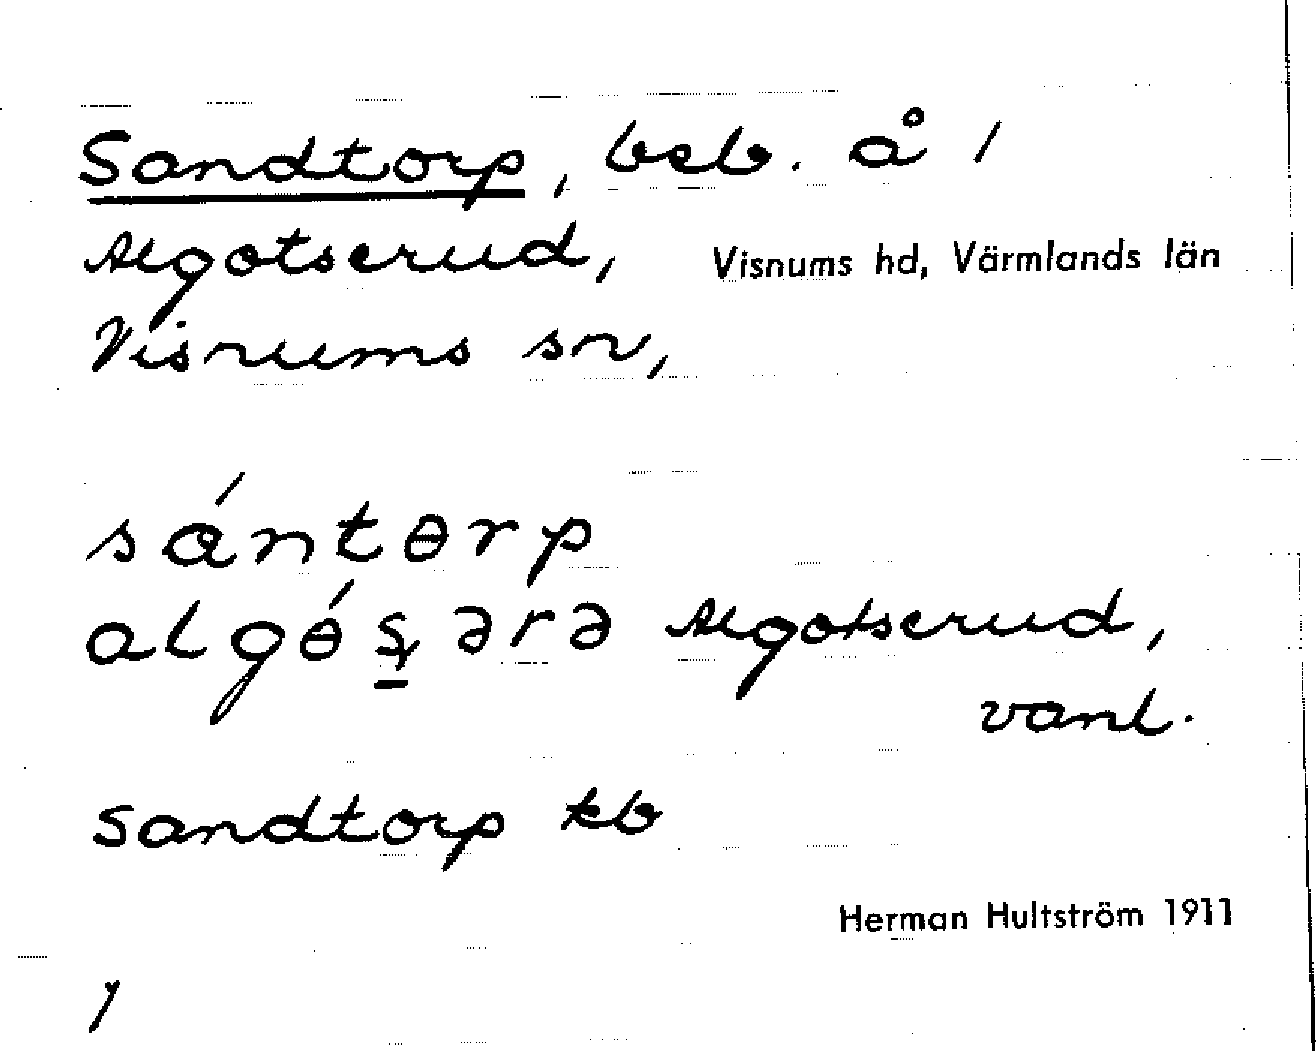 Sandtorp, beb. å 1
Algotserud, Visnums hd, Värmlands län
Visnums sn,
sántɵrp
algɵ́ʂərə Algotserud,
vanl.
Sandtorp kb
Herman Hultström 1911